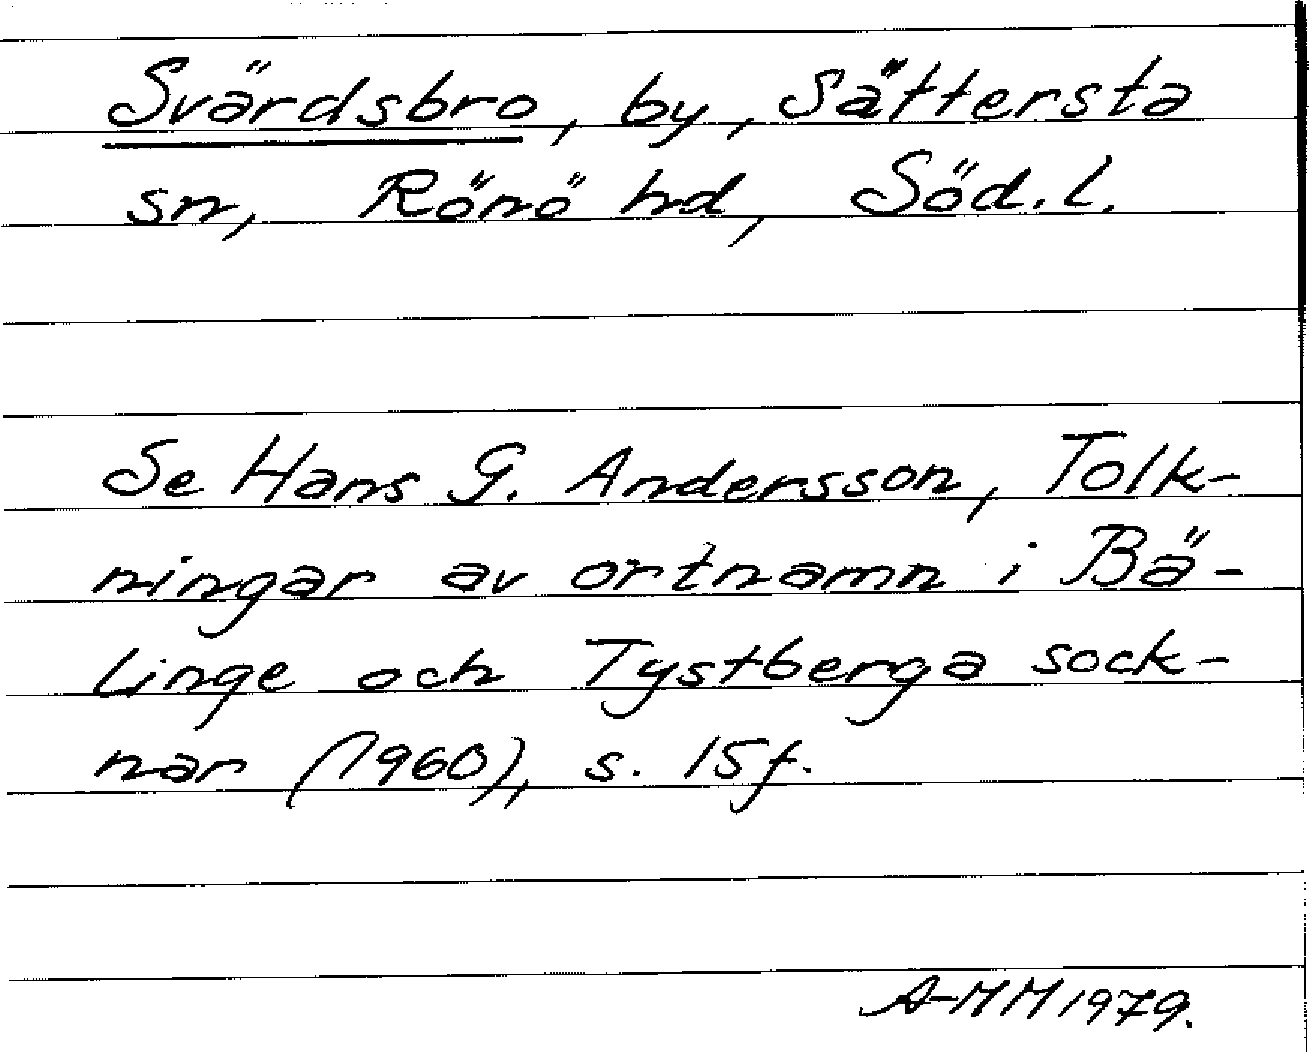 Svärdsbro, by, Sättersta
sn, Rönö hd, Söd.l.
Se Hans G. Andersson, Tolk-
ningar av ortnamn i Bä-
linge och Tystberga sock-
nar (1960), s. 15f.
A-MM 1979.